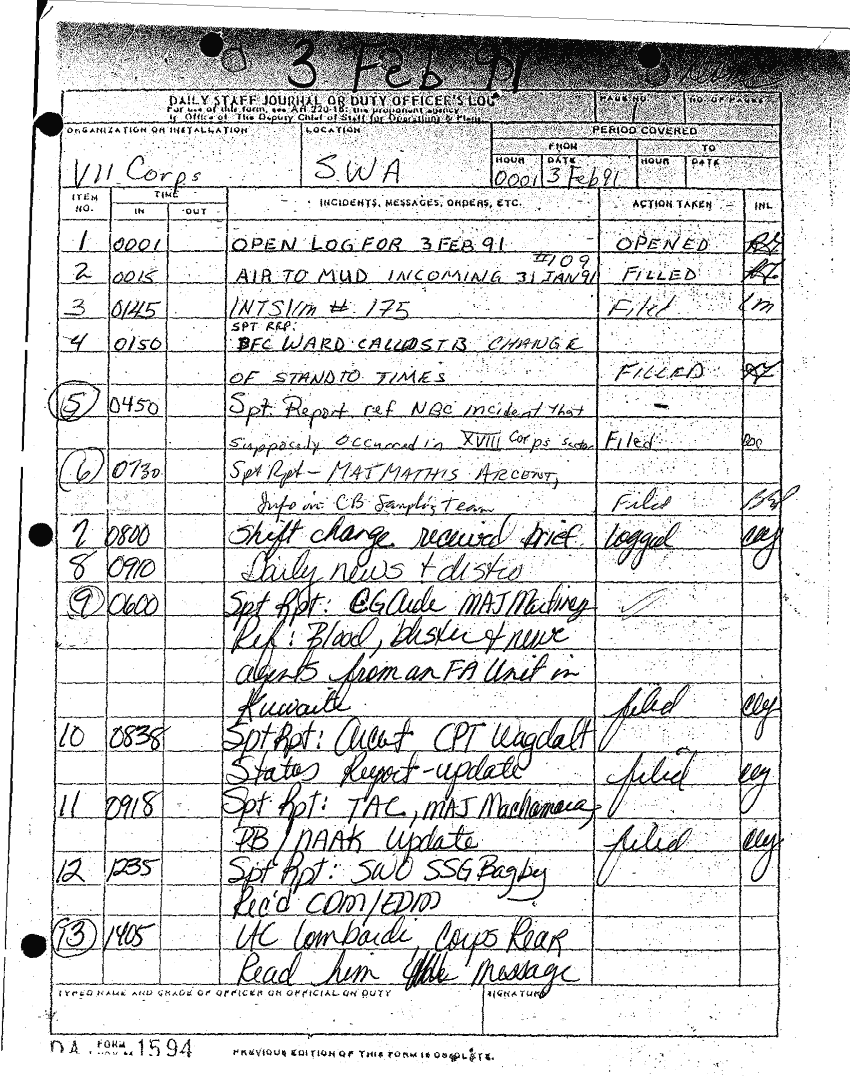 3 Feb 91
DAILY STAFF JOURNAL OR DUTY OFFICER'S LOG
For use of this form, see AR 220-15; the proponent agency
is Office of The Deputy Chief of Staff for Operations & Plans.
PAGE NO. NO. OF PAGES
ORGANIZATION OR INSTALLATION LOCATION PERIOD COVERED
FROM TO
VII Corps SWA HOUR DATE HOUR DATE
0001 3 Feb 91
ITEM NO. TIME INCIDENTS, MESSAGES, ORDERS, ETC. ACTION TAKEN INL
IN OUT
1 0001 OPEN LOG FOR 3 FEB 91 OPENED
#109
2 0015 AIR TO MUD INCOMING 31 JAN 91 FILLED
3 0145 INTSUM # 175 Filed lm
SPT RRP:
4 0150 WARD CHANGE
OF STANDTO TIMES FILLED
5 0450 Spt. Report ref NBC incident that -
supposedly occurred in XVIII Corps sector Filed
6 0730 Spt Rpt - MAJ MATHIS ARCENT,
Info on CB Sampling Team Filed
7 0800 Shift change received brief. logged
8 0910 Daily news + distro
9 0600 Spt Rpt: CG Aide MAJ Martinez
Ref: Blood, blister & nerve
agents from an FA Unit in
Kuwaite filed
10 0838 Spt Rpt: Arcent CPT Wagdalt
Status Report-update filed
11 0918 Spt Rpt: TAC, MAJ
PB/NAAK Update filed
12 1235 Spt Rpt: SWO SSG Bagby
Rec'd CDM/EDM
13 1405 LTC Lombardi, Corps Rear
Read him message
TYPED NAME AND GRADE OF OFFICER OR OFFICIAL ON DUTY SIGNATURE
DA FORM 1594 PREVIOUS EDITION OF THIS FORM IS OBSOLETE.